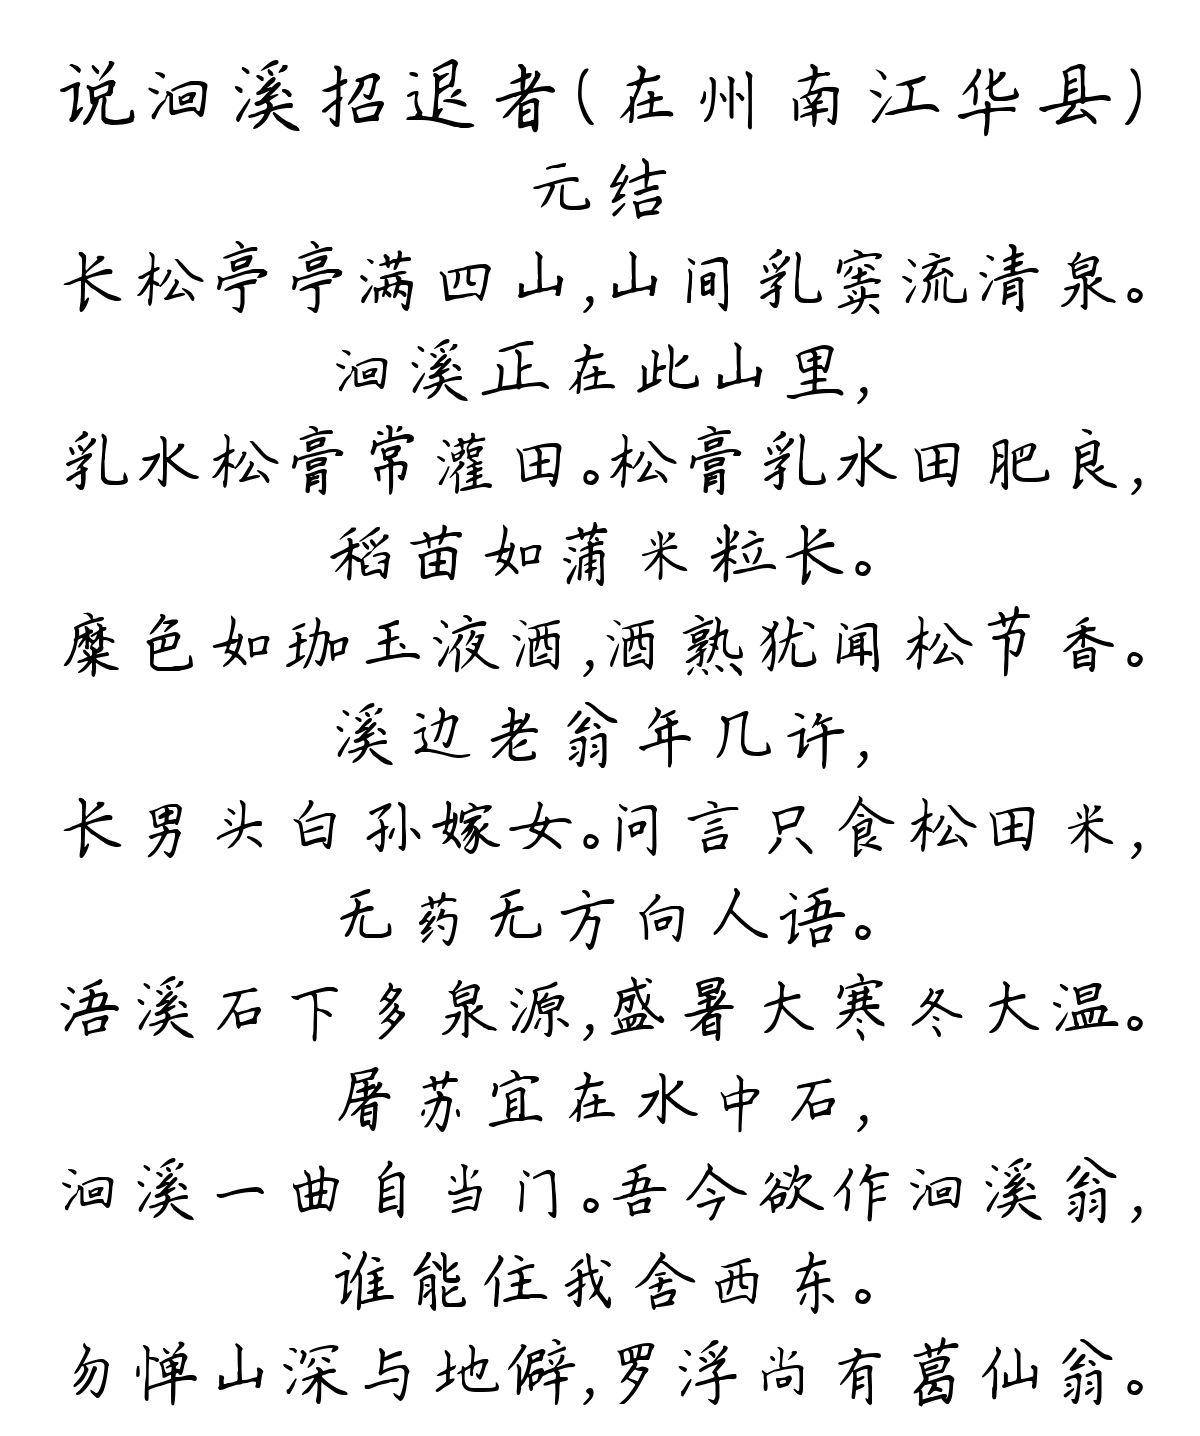 说洄溪招退者(在州南江华县)
元结
长松亭亭满四山,山间乳窦流清泉。
洄溪正在此山里,
乳水松膏常灌田。松膏乳水田肥良,
稻苗如蒲米粒长。
糜色如珈玉液酒,酒熟犹闻松节香。
溪边老翁年几许,
长男头白孙嫁女。问言只食松田米,
无药无方向人语。
浯溪石下多泉源,盛暑大寒冬大温。
屠苏宜在水中石,
洄溪一曲自当门。吾今欲作洄溪翁,
谁能住我舍西东。
勿惮山深与地僻,罗浮尚有葛仙翁。